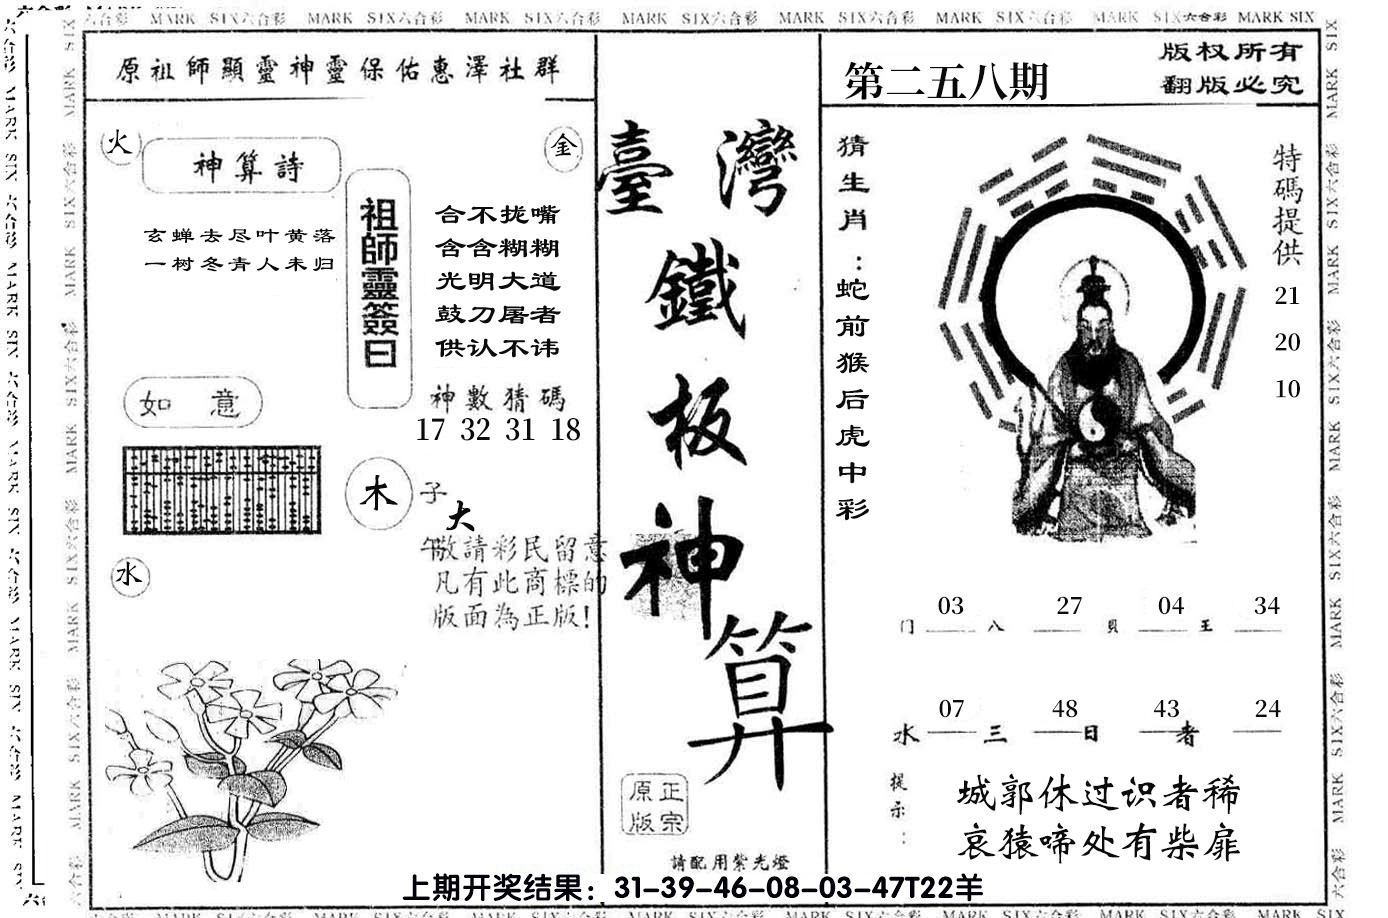 MARK SIX六合彩 MARK SIX六合彩 MARK SIX六合彩 MARK SIX六合彩 MARK SIX六合彩 MARK SIX六合彩 MARK SIX六合彩 MARK SIX
原祖師顯靈神靈保佑惠澤社群
火
金
神算詩
玄蝉去尽叶黄落
一树冬青人未归
祖師靈簽曰
合不拢嘴
含含糊糊
光明大道
鼓刀屠者
供认不讳
神數猜碼
17 32 31 18
如意
木
水
子
大
午
敬請彩民留意
凡有此商標的
版面為正版!
臺灣
鐵
板
神
算
正宗
原版
請配用紫光燈
第二五八期
版权所有
翻版必究
猜生肖:蛇前猴后虎中彩
特碼提供
21
20
10
03 27 04 34
门 八 貝 王
07 48 43 24
水 三 日 者
提示:
城郭休过识者稀
哀猿啼处有柴扉
上期开奖结果：31-39-46-08-03-47T22羊